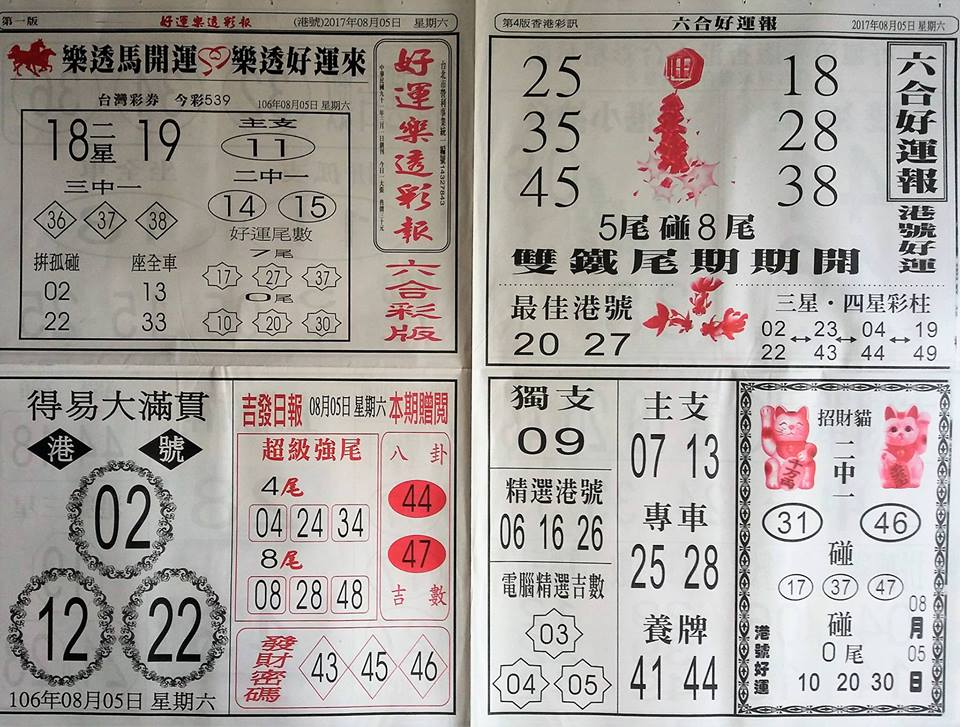 第一版
好運樂透彩報
(港號)2017年08月05日 星期六
樂透馬開運 樂透好運來
台灣彩券 今彩539
106年08月05日 星期六
18 二星 19
主支
11
三中一
二中一
36 37 38
14 15
好運尾數
7尾
拼孤碰 座全車
17 27 37
02 13
0尾
22 33
10 20 30
好運樂透彩報
六合彩版
第4版香港彩訊
六合好運報
2017年08月05日 星期六
25 旺 18
35 28
45 38
5尾碰8尾
雙鐵尾期期開
六合好運報
港號好運
最佳港號
20 27
三星·四星彩柱
02 23 04 19
22 43 44 49
得易大滿貫
港號
02
12 22
106年08月05日 星期六
吉發日報 08月05日 星期六 本期贈閱
超級強尾
4尾
04 24 34
8尾
08 28 48
八卦
44
47
吉數
發財密碼
43 45 46
獨支
09
精選港號
06 16 26
電腦精選吉數
03
04 05
主支
07 13
專車
25 28
養牌
41 44
招財貓
二中一
31 46
碰
17 37 47
碰
0尾
10 20 30
港號好運
08月05日